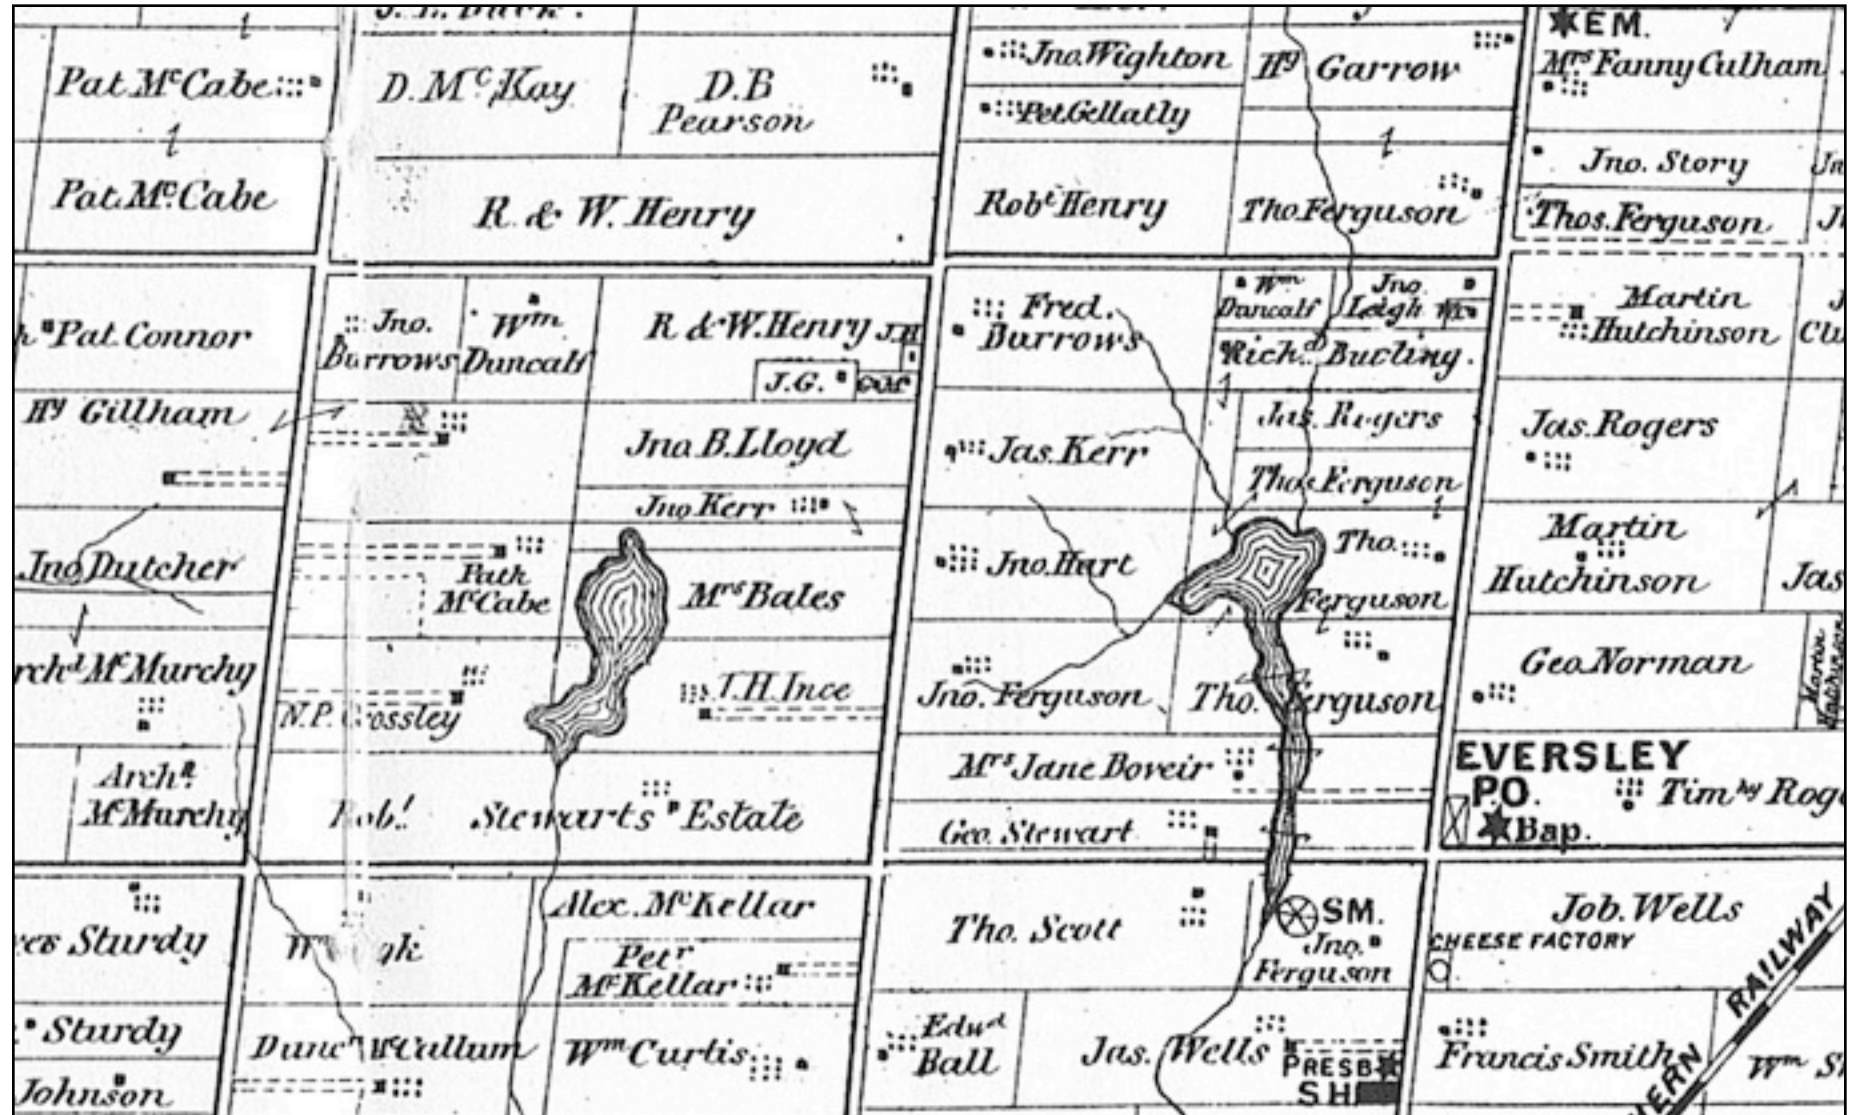 Pat. McCabe
D. McKay
D.B
Pearson
Jno. Wighton
Pet. Gellatly
Hy Garrow
EM.
Mrs Fanny Culham
Pat. McCabe
R. & W. Henry
Robt Henry
Tho. Ferguson
Jno. Story
Thos. Ferguson
Pat. Connor
Jno.
Burrows
Wm
Duncalf
R & W. Henry
J.H
J.G.
Fred.
Burrows
Wm
Duncalf
Jno.
Leigh
Richd Bucling.
Martin
Hutchinson
Hy Gillham
Jno B. Lloyd
Jas. Kerr
Jas. Rogers
Jas. Rogers
Jno. Kerr
Thos. Ferguson
Jno. Dutcher
Path
McCabe
Mrs Bales
Jno. Hart
Tho.
Ferguson
Martin
Hutchinson
Jas
McMurchy
N.P. Crossley
J.H. Ince
Jno. Ferguson
Tho. Ferguson
Geo. Norman
Martin
Hutchinson
Archd
McMurchy
Robt Stewarts Estate
Mrs Jane Boveir
Geo. Stewart
EVERSLEY
P.O.
Bap.
Timhy Rog
Sturdy
Alex. McKellar
Petr
McKellar
Tho. Scott
SM.
Jno.
Ferguson
Job. Wells
CHEESE FACTORY
RAILWAY
Sturdy
Johnson
Duncn McCallum
Wm Curtis
Edwd
Ball
Jas. Wells
PRESB
SH
Francis Smith
Wm S
HERN